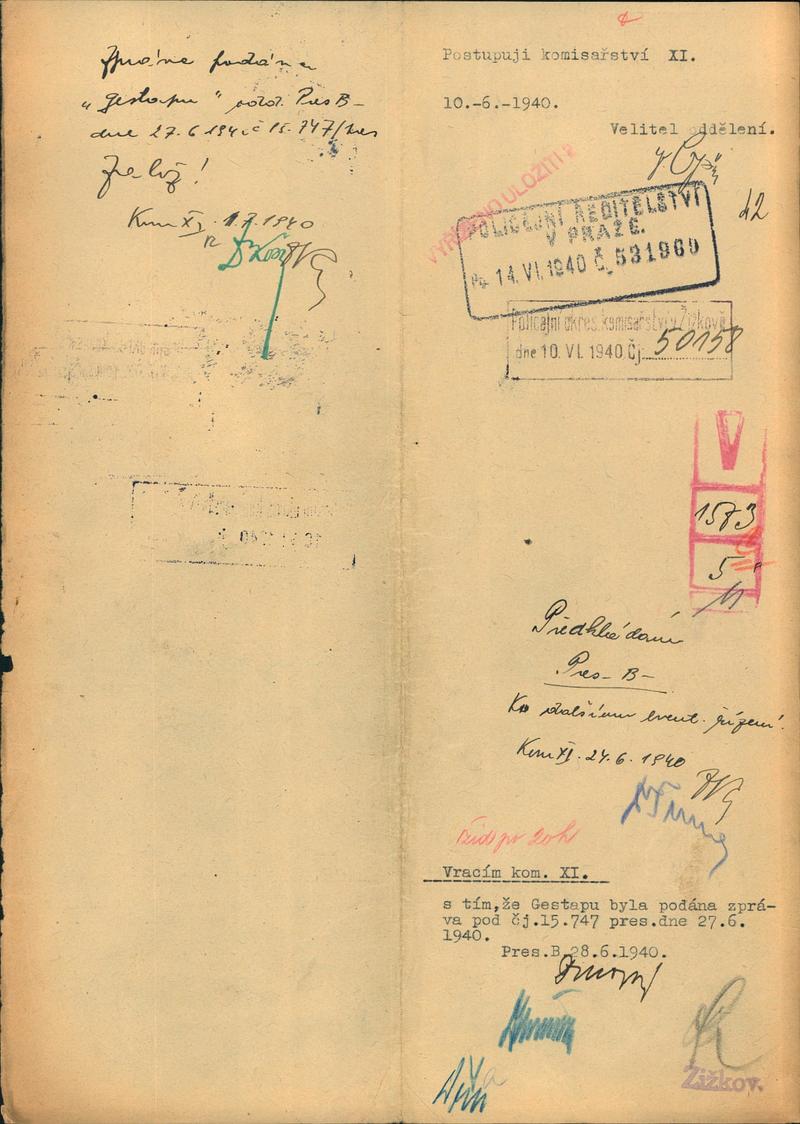 Zpráva podána
„gestapu“ odd. Pres B-
dne 27.6 1940 č 15.747/pres
Založ!
Kom XI. 1.7.1940
Postupuji komisařství XI.
10.-6.-1940.
Velitel oddělení.
42
VYŘÍZENO ULOŽITI
POLICEJNÍ ŘEDITELSTVÍ
V PRAZE.
14.VI.1940 Č. 531960
Policejní okres. komisařství v Žižkově
dne 10.VI.1940 Čj. 50158
V
1573
5
Předkládám
Pres- B-
Ku dalšímu event. řízení.
Kom XI. 24.6.1940
Žid po 20h
Vracím kom. XI.
s tím,že Gestapu byla podána zprá-
va pod čj.15.747 pres.dne 27.6.
1940.
Pres.B.28.6.1940.
Žižkov.